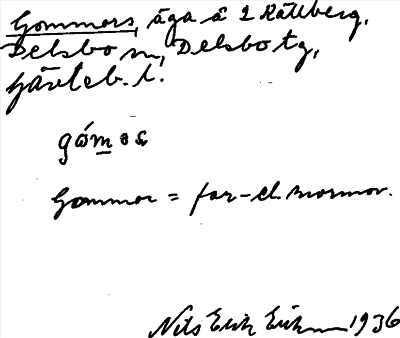 Gommors, äga å 2 Råttberg,
Delsbo sn, Delsbo tg,
Gävleb. l.
gómos
Gommor = far- el. mormor.
Nils Erik Erikson 1936